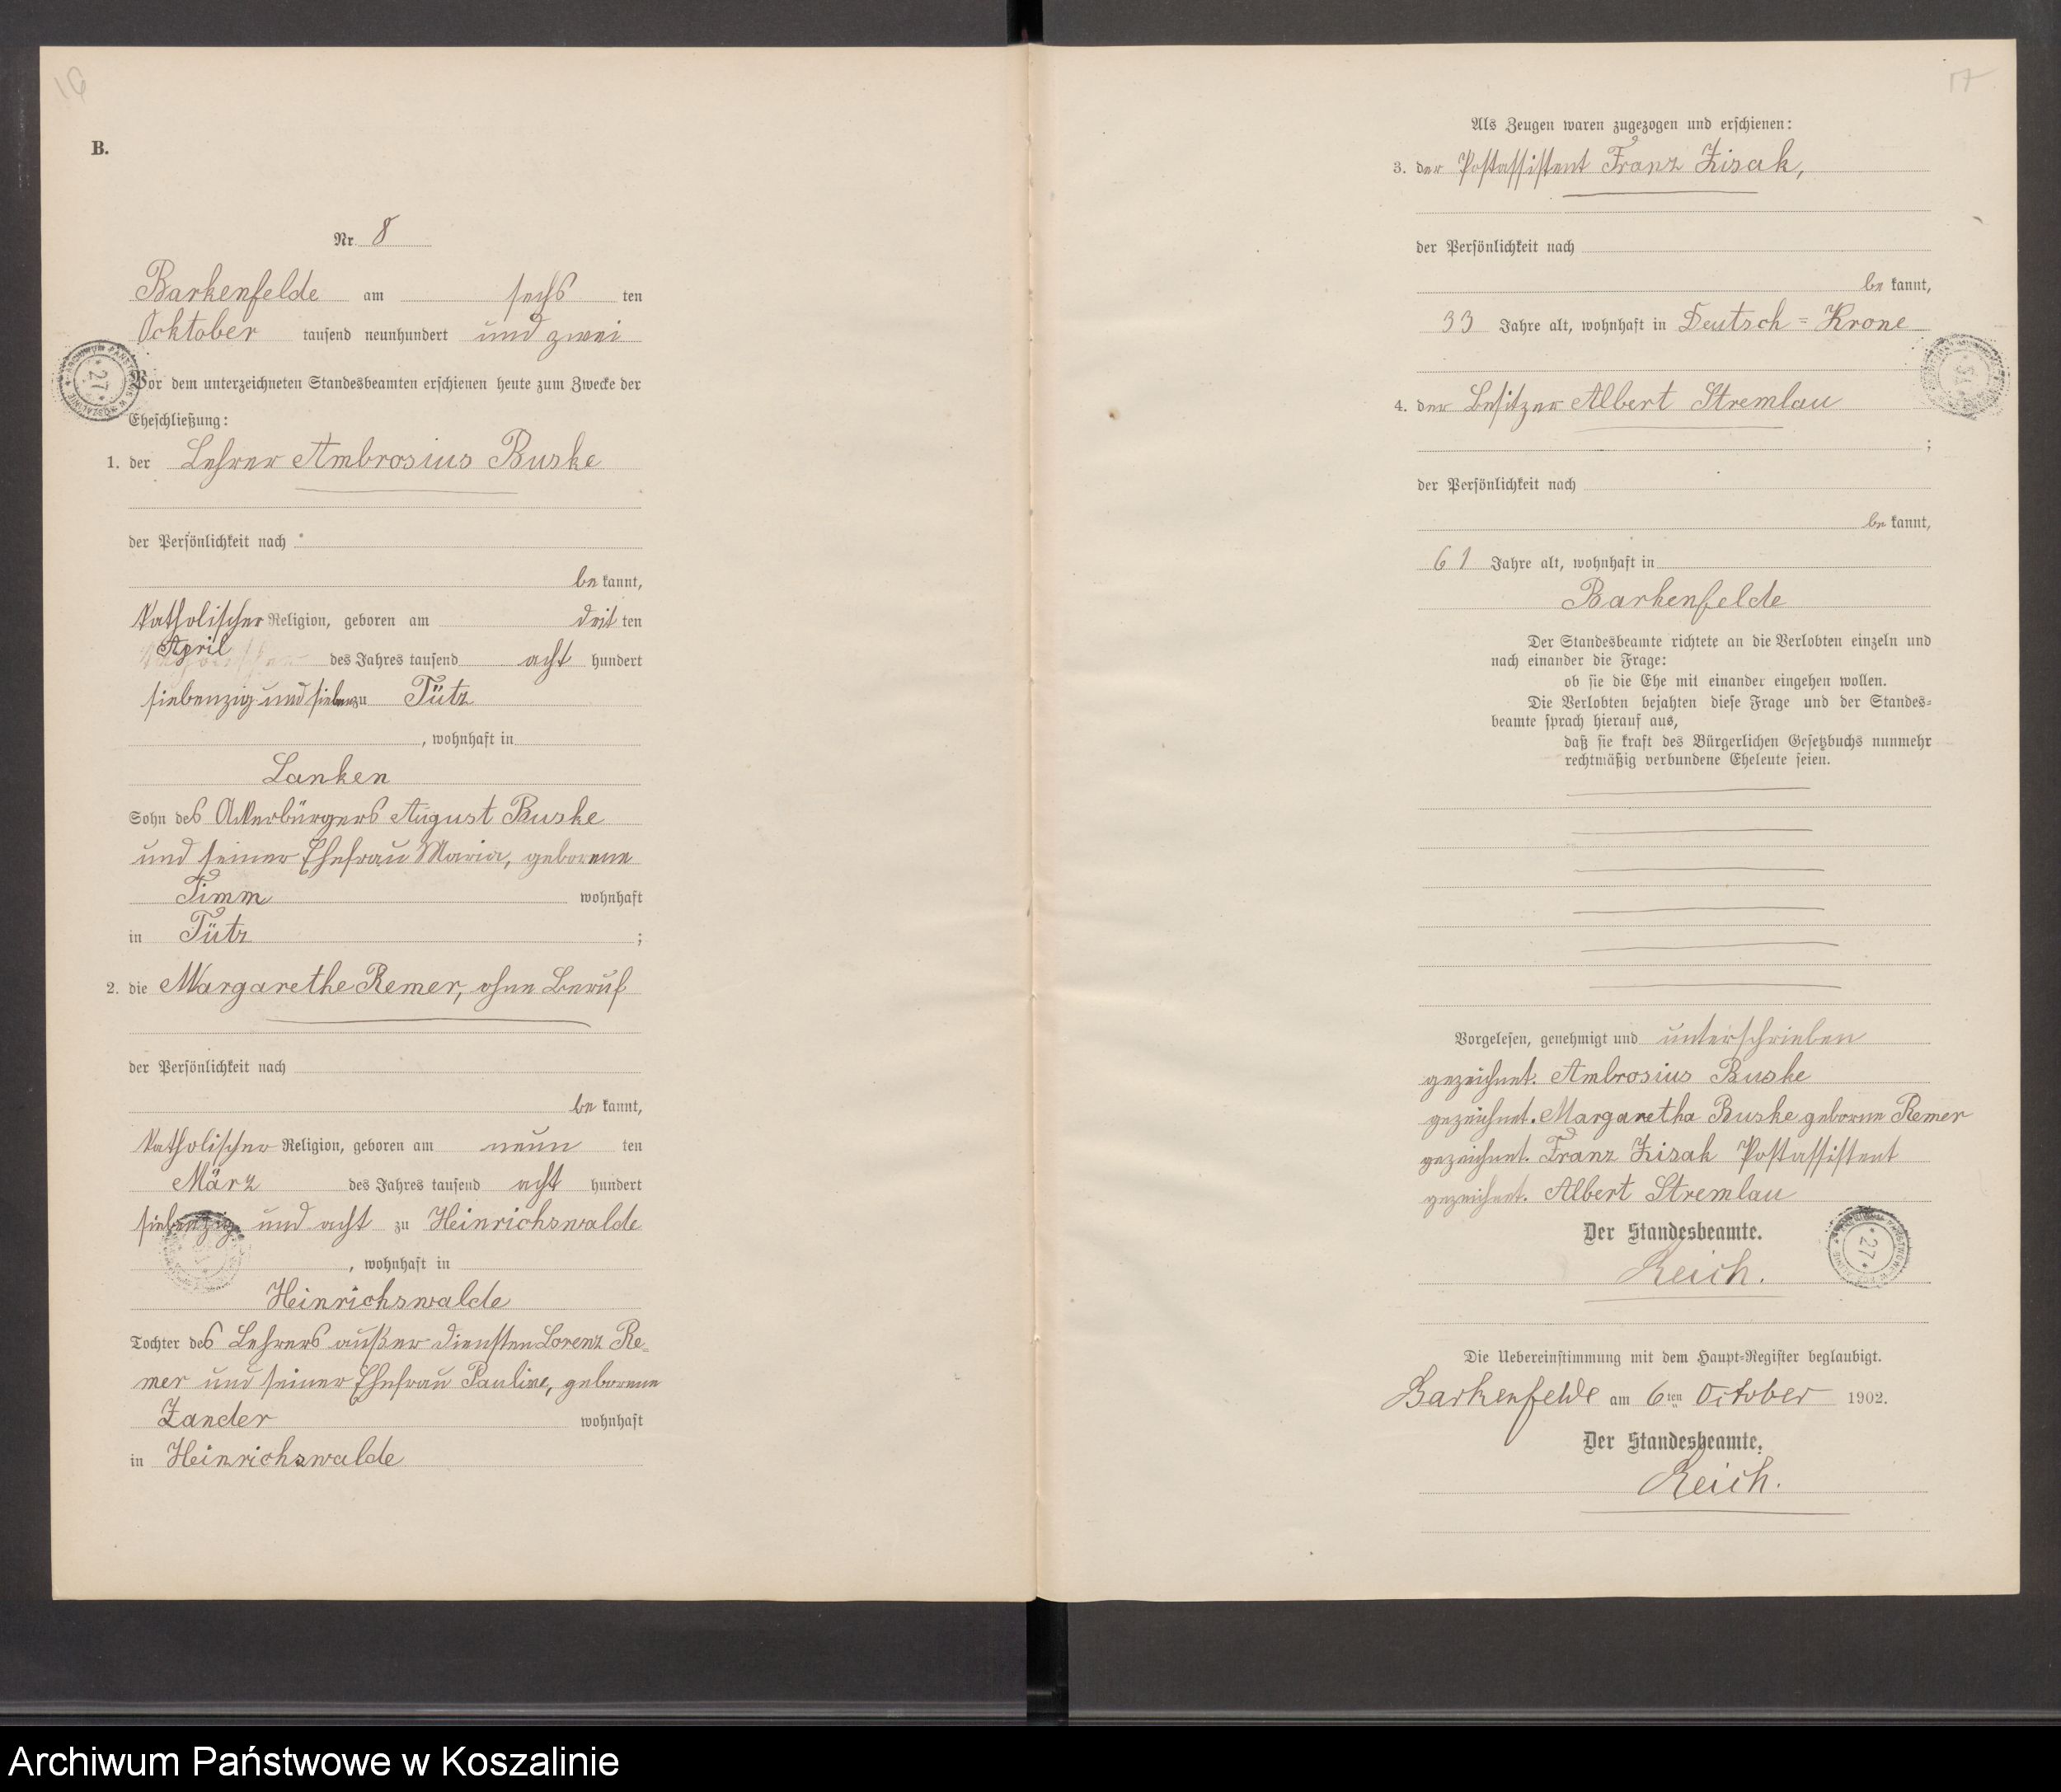 16
B.
Nr. 8
Barkenfelde am sechs ten
Ocktober tausend neunhundert und zwei
Vor dem unterzeichneten Standesbeamten erschienen heute zum Zwecke der
Eheschließung:
1. der Lehrer Ambrosius Buske
der Persönlichkeit nach
be kannt,
katholischer Religion, geboren am drit ten
April des Jahres tausend acht hundert
siebenzig und sieben zu Tütz
, wohnhaft in
Lanken
Sohn des Ackerbürgers August Buske
und seiner Ehefrau Maria, geborene
Timm wohnhaft
in Tütz ;
2. die Margarethe Remer, ohne Beruf
der Persönlichkeit nach
be kannt,
katholischer Religion, geboren am neun ten
März des Jahres tausend acht hundert
siebenzig und acht zu Heinrichswalde
, wohnhaft in
Heinrichswalde
Tochter des Lehrers außer Diensten Lorenz Re=
mer und seiner Ehefrau Pauline, geborene
Zander wohnhaft
in Heinrichswalde
17
Als Zeugen waren zugezogen und erschienen:
3. der Postassistent Franz Zisak,
der Persönlichkeit nach
be kannt,
33 Jahre alt, wohnhaft in Deutsch=Krone
4. der Besitzer Albert Stremlau
;
der Persönlichkeit nach
be kannt,
61 Jahre alt, wohnhaft in
Barkenfelde
Der Standesbeamte richtete an die Verlobten einzeln und
nach einander die Frage:
ob sie die Ehe mit einander eingehen wollen.
Die Verlobten bejahten diese Frage und der Standes=
beamte sprach hierauf aus,
daß sie kraft des Bürgerlichen Gesetzbuchs nunmehr
rechtmäßig verbundene Eheleute seien.
Vorgelesen, genehmigt und unterschrieben
gezeichnet. Ambrosius Buske
gezeichnet. Margaretha Buske geborne Remer
gezeichnet. Franz Zisak Postassistent
gezeichnet. Albert Stremlau
Der Standesbeamte.
Reich.
Die Uebereinstimmung mit dem Haupt=Register beglaubigt.
Barkenfelde am 6ten October 1902.
Der Standesbeamte.
Reich.
Archiwum Państwowe w Koszalinie